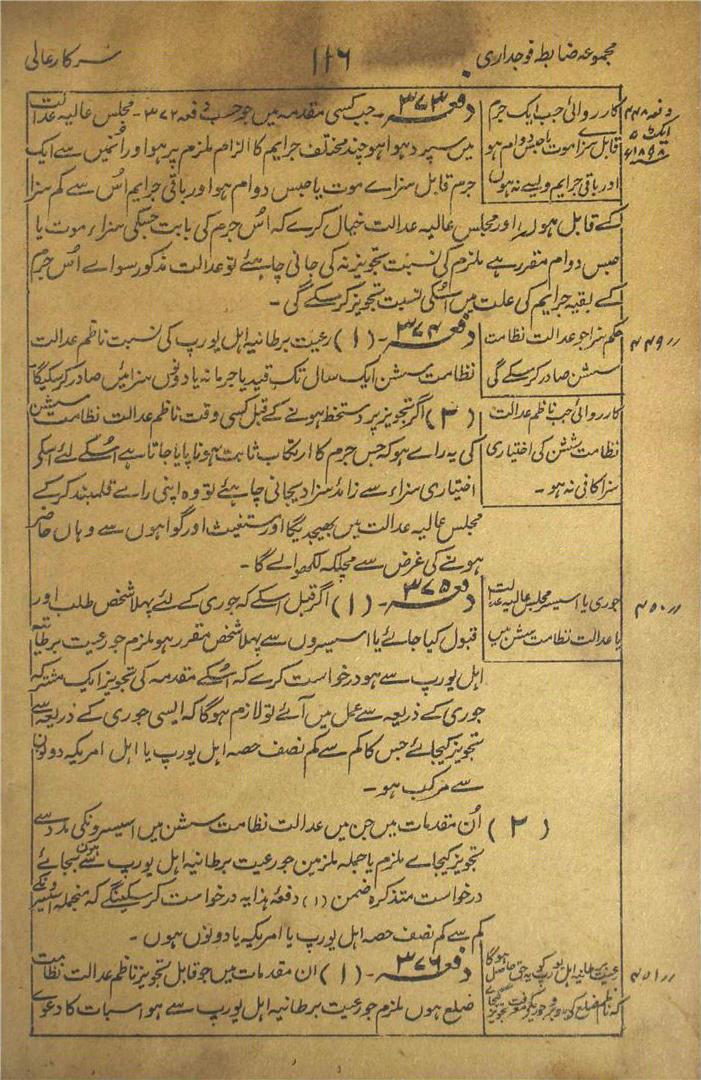 مجموعہ ضابطہ فوجداری ۱۱۶ سرکار عالی
دفعہ ۴۴۸ ایکٹ ۵ ۱۸۹۸ء
کارروائی جب ایک جرم
قابل سزاے موت یا حبس دوام ہو
اور باقی جرایم ویسے نہ ہوں
دفعہ ۳۷۳۔ جب کسی مقدمہ میں جو حسب دفعہ ۳۷۲۔ مجلس عالیہ عدالت
میں سپرد ہوا ہو چند مختلف جرایم کا الزام ملزم پر ہو اور اُنمیں سے ایک
جرم قابل سزاے موت یا حبس دوام ہو اور باقی جرایم اُس سے کم سزا
کے قابل ہوں اور مجلس عالیہ عدالت خیال کرے کہ اُس جرم کی بابت جسکی سزاء موت یا
حبس دوام مقرر ہے ملزم کی نسبت تجویز نہ کی جانی چاہئے تو عدالت مذکور سواے اُس جرم
کے بقیہ جرایم کی علت میں اُسکی نسبت تجویز کرسکے گی۔
۴۴۹ 〃
حکم سزا جو عدالت نظامت
سشن صادر کرسکے گی
دفعہ ۳۷۴۔ (۱) رعیت برطانیہ اہل یورپ کی نسبت ناظم عدالت
نظامت سشن ایک سال تک قید یا جرمانہ یا دونوں سزائیں صادر کرسکیگا
کارروائی جب ناظم عدالت
نظامت سشن کی اختیاری
سزا کافی نہ ہو۔
(۲) اگر تجویز پر دستخط ہونے کے قبل کسی وقت ناظم عدالت نظامت سشن
کی یہ راے ہو کہ جس جرم کا ارتکاب ثابت ہونا پایا جاتا ہے اُسکے لئے اسکی
اختیاری سزاء سے زائد سزا دیجانی چاہئے تو وہ اپنی راے قلمبند کرکے
مجلس عالیہ عدالت میں بھیجدیگا اور مستغیث اور گواہوں سے وہاں حاضر
ہونے کی غرض سے مچلکہ لکھوالے گا۔
۴۵۰ 〃
جوری یا اسیسر مجلس عالیہ عدالت
یا عدالت نظامت سشن میں
دفعہ ۳۷۵۔ (۱) اگر قبل اسکے کہ جوری کے لئے پہلا شخص طلب اور
قبول کیا جائے یا اسیسروں سے پہلا شخص مقرر ہو ملزم جو رعیت برطانیہ
اہل یورپ سے ہو درخواست کرے کہ اُسکے مقدمہ کی تجویز ایک مشترکہ
جوری کے ذریعہ سے عمل میں آئے تو لازم ہوگا کہ ایسی جوری کے ذریعہ سے
تجویز کیجائے جس کا کم سے کم نصف حصہ اہل یورپ یا اہل امریکہ دونوں
سے مرکب ہو۔
(۲) اُن مقدمات میں جن میں عدالت نظامت سشن میں اسیسرونکی مدد سے
تجویز کیجاے ملزم یا جملہ ملزمین جو رعیت برطانیہ اہل یورپ سے ہوں بجائے
درخواست متذکرہ ضمن (۱) دفعہٴ ہذا یہ درخواست کرسکینگے کہ منجملہ اسیسرونکے
کم سے کم نصف حصہ اہل یورپ یا امریکہ یا دونوں ہوں۔
۴۵۱ 〃
رعیت برطانیہ اہل یورپ کو یہ حق حاصل ہوگا
کہ ناظم ضلع کے
دفعہ ۳۷۶۔ (۱) ان مقدمات میں جو قابل تجویز ناظم عدالت نظامت
ضلع ہوں ملزم جو رعیت برطانیہ اہل یورپ سے ہو اسبات کا دعوے